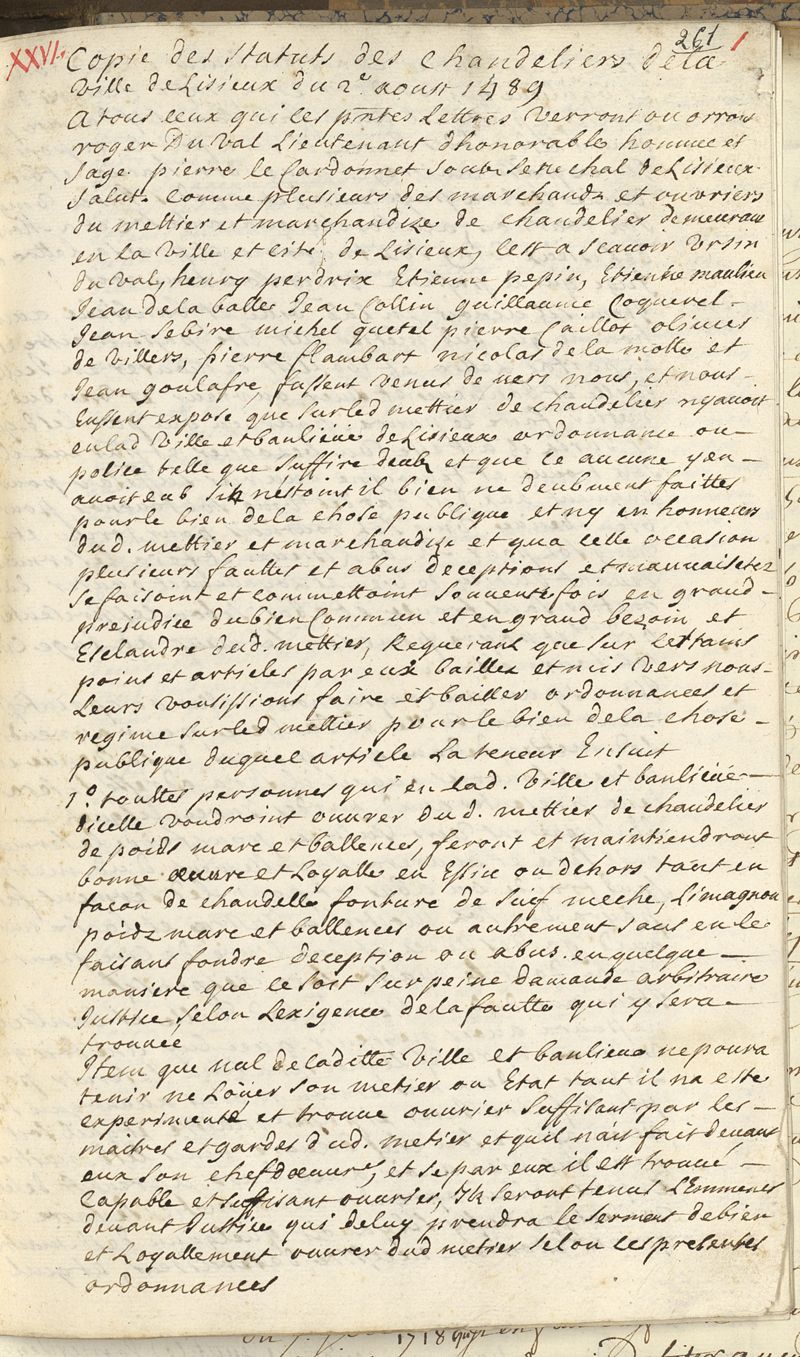 XXVI. 261 1
Copie des statuts des chandeliers de la
ville de Lisieux du 2e. aoust 1489
A tous ceux qui ces pntes Lettres verront ou orront
roger Du val Lieutenant d'honorable homme et
sage pierre le Cardonnet soubs senechal de Lisieux
salut. Comme plusieurs des marchands et ouvriers
du mettier et marchandize de chandelier demeurant
en la ville et cité de Lisieux, cest a scavoir Ursin
du val, henry perdrix Etienne pepin, Etienne maulieu
Jean de la balle Jean Collin guillaume Coquerel-
Jean Sebire michel quetel pierre Caillot olivier
de villers, pierre flambart nicolas de la motte et
Jean goulafre, fussent venus de vers nous, et nous-
Eussent exposé que sur led mettier de chandelier ny avoit
en lad ville et banlieüe de Lisieux ordonnance ou-
police telle que suffire deub et que ce aucune y en-
avoit eub sik nestoint il bien ne deubment faittes
pour le bien de la chose publique et ny en honneur
dud. mettier et marchandize et qua celle occasion
plusieurs fauttes et abus deceptions et mauvaisetez
se faisoint et commettoint souventefois en grand-
prejudice du bien Commun et en grand bezoin et
Esclandre dud. mettier, Requerant que sur certains
poins et articles par eux baillez et mis vers nous-
Leurs voulissions faire et bailler ordonnances et
regime sur led mettier pour le bien de la chose-
publique duquel article La teneur Ensuit
1o. touttes personnes qui en lad. ville et banlieüe-
dicelle voudroint ouvrer dud. mettier de chandelier
de poids marc et ballences, feront et maintiendront
bonne œuvre et Loyalle en Essiu ou dehors tant en
façon de chandelle fonture de suif meche, Limagnon
poidz marc et ballences ou autrement sans en le
faisant fondre deception ou abus en quelque-
maniere que ce soit sur peine damande arbitraire
Justice selon Lexigence de la fautte qui y sera-
trouvee
Item que nul de laditte ville et banlieue ne poura
tenir ne Loüer son metier ou Etat tant il na esté
experimenté et trouvé ouvrier suffisant par les-
maitres et gardes dud. metier et quil nait fait devant
eux son chefdœuvre, et se par eux il est trouvé-
Capable et suffisant ouvrier, Ik seront tenus L'Emmener
devant Justice qui de luy prendra le serment de bien
et Loyallement ouvrer dud metier selon ces presentes
ordonnances
1718